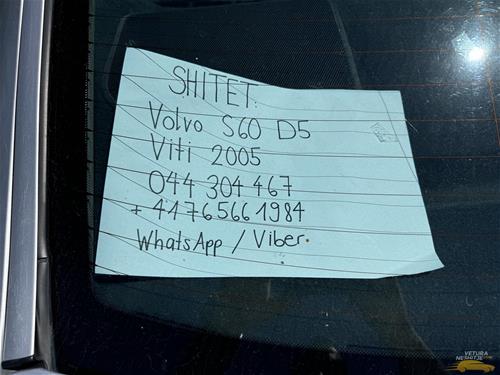 SHITET:
Volvo S60 D5
Viti 2005
044 304 467
+41765661984
WhatsApp / Viber.
VETURA
NESHITJE.COM